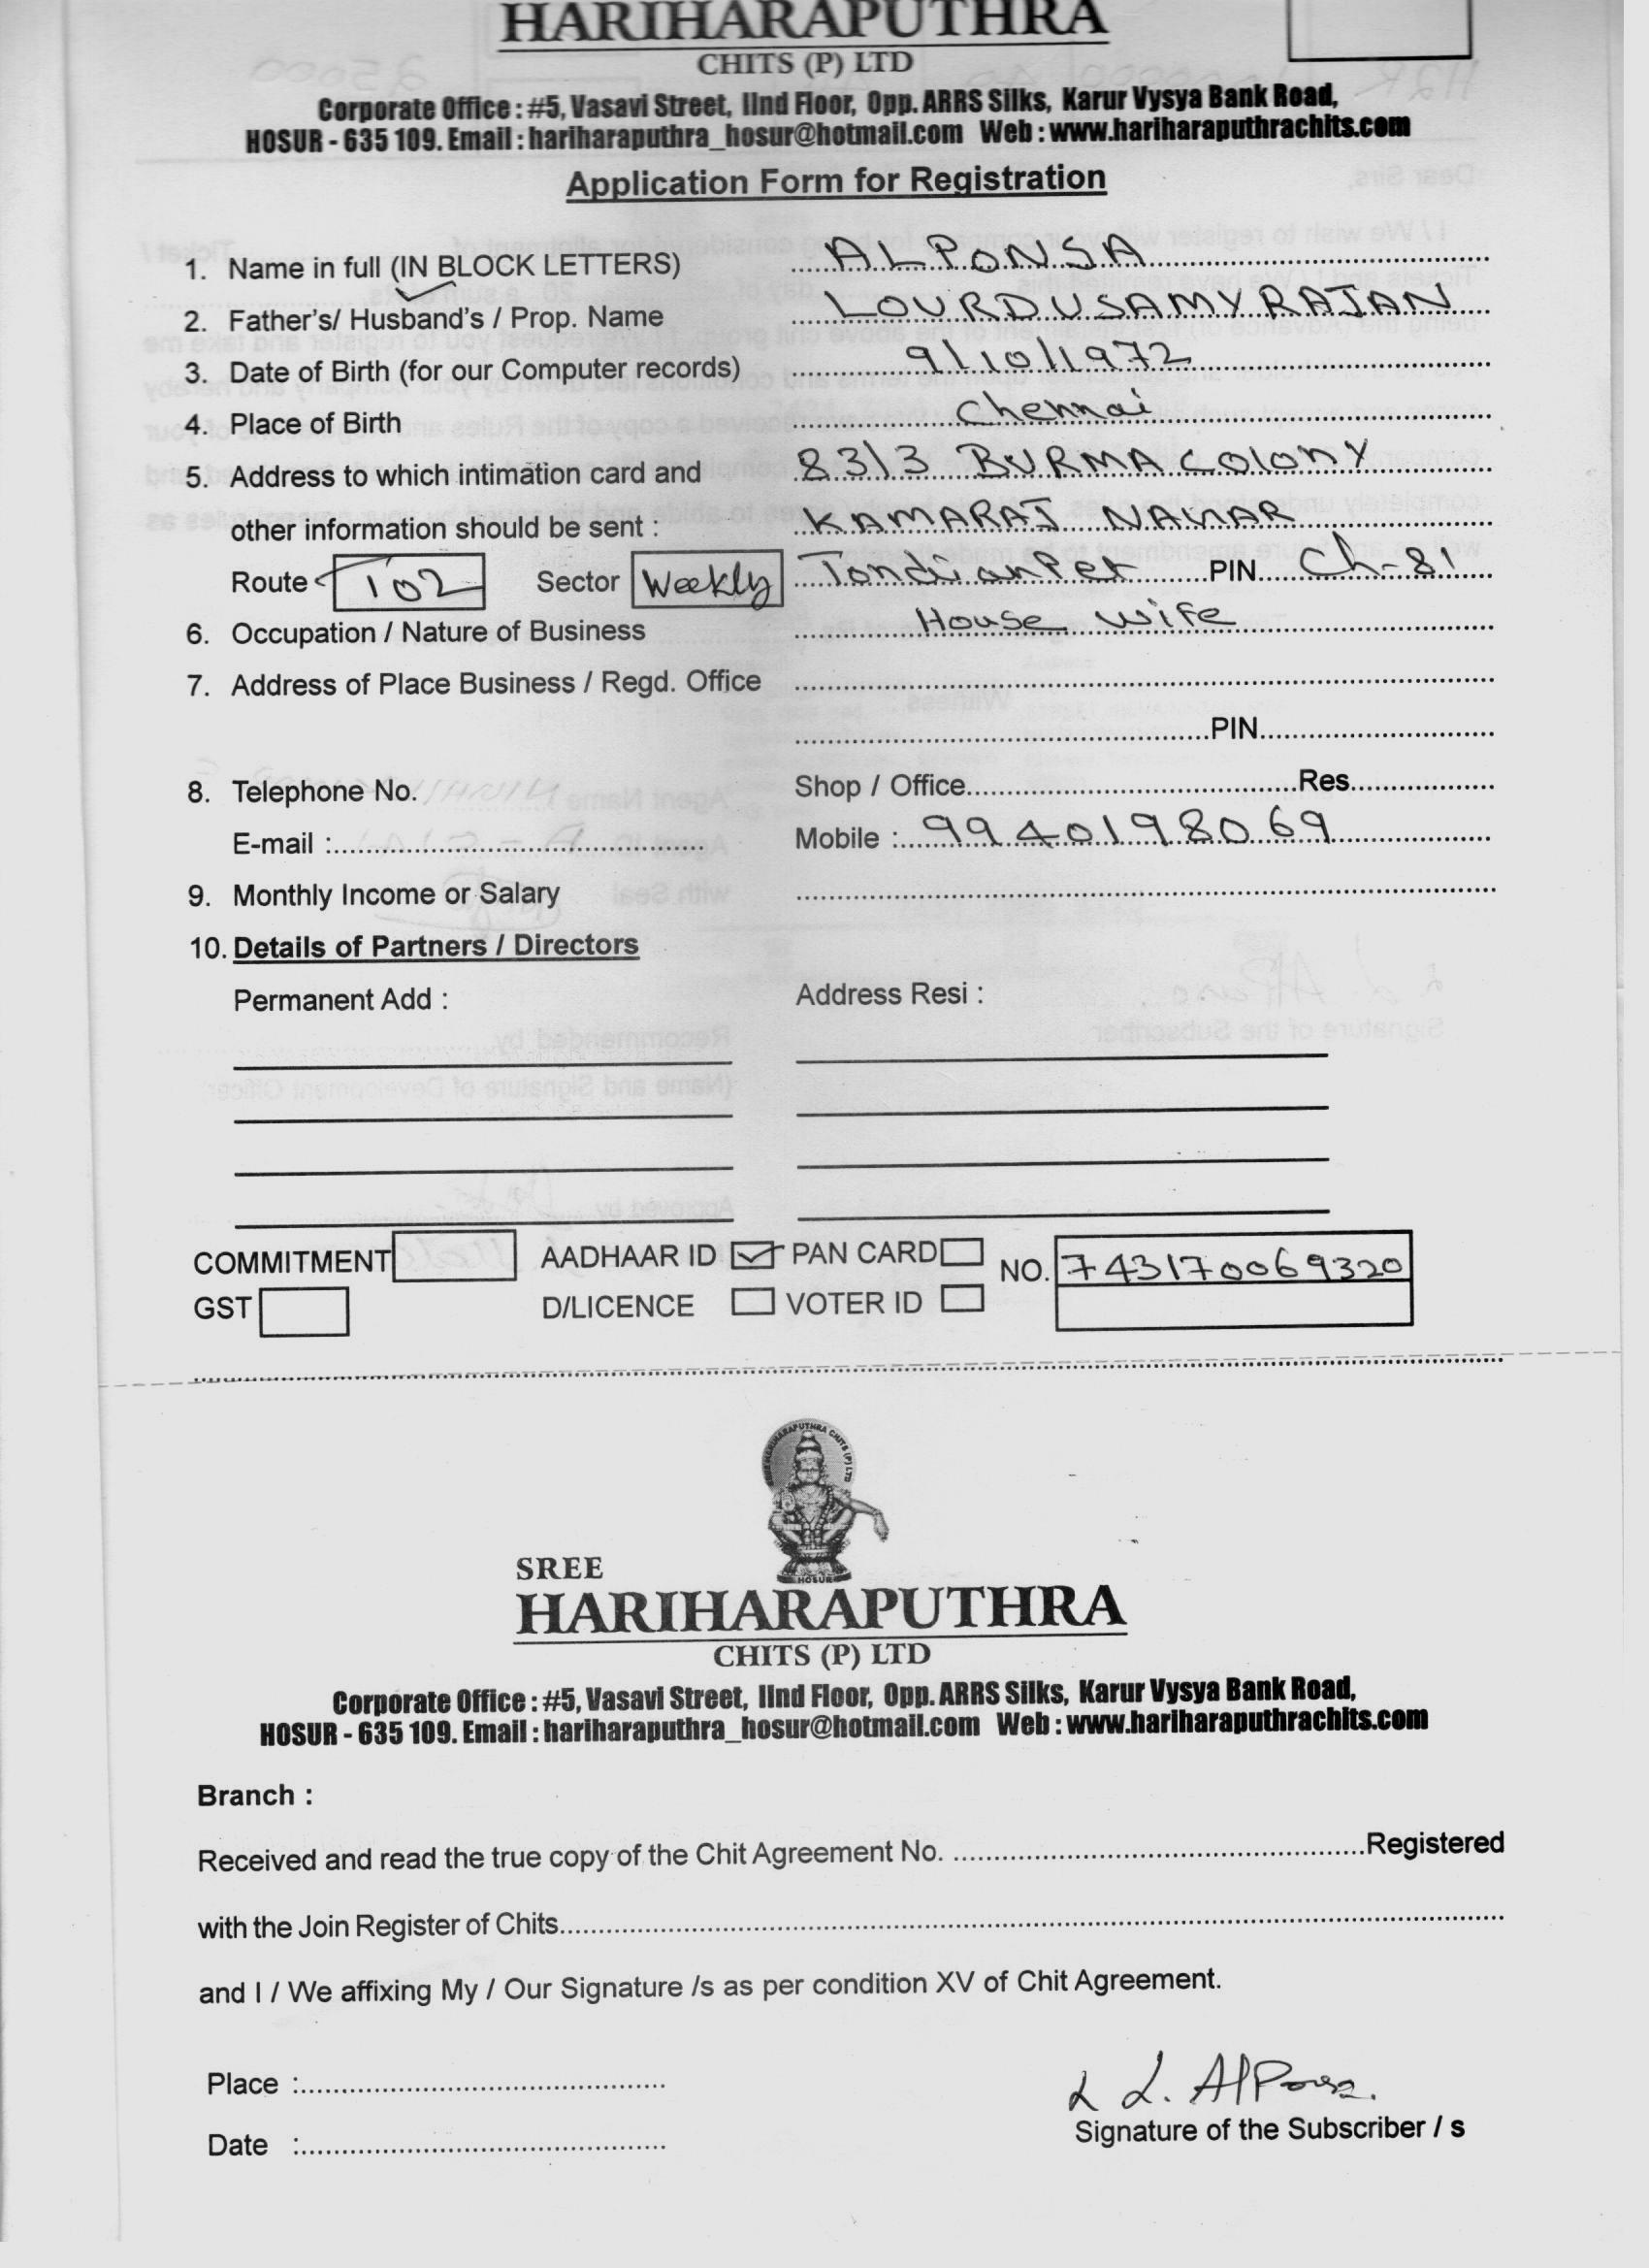 HARIHARAPUTHRA
CHITS (P) LTD
Corporate Office : #5, Vasavi Street, IInd Floor, Opp. ARRS Silks, Karur Vysya Bank Road,
HOSUR - 635 109. Email : hariharaputhra_hosur@hotmail.com Web : www.hariharaputhrachits.com
Application Form for Registration
1. Name in full (IN BLOCK LETTERS) ALPONSA
2. Father's/ Husband's / Prop. Name LOURDUSAMY RAJAN
3. Date of Birth (for our Computer records) 9/10/1972
4. Place of Birth Chennai
5. Address to which intimation card and 83/3 BURMA COLONY
other information should be sent : KAMARAJ NAGAR
Route T02 Sector Weekly Tondiarpet PIN Ch-81
6. Occupation / Nature of Business House wife
7. Address of Place Business / Regd. Office
PIN
8. Telephone No. Shop / Office Res
E-mail : Mobile : 9940198069
9. Monthly Income or Salary
10. Details of Partners / Directors
Permanent Add : Address Resi :
COMMITMENT AADHAAR ID PAN CARD NO. 743170069320
GST D/LICENCE VOTER ID
SREE HARIHARAPUTHRA CHITS (P) LTD
HOSUR
SREE
HARIHARAPUTHRA
CHITS (P) LTD
Corporate Office : #5, Vasavi Street, IInd Floor, Opp. ARRS Silks, Karur Vysya Bank Road,
HOSUR - 635 109. Email : hariharaputhra_hosur@hotmail.com Web : www.hariharaputhrachits.com
Branch :
Received and read the true copy of the Chit Agreement No. Registered
with the Join Register of Chits
and I / We affixing My / Our Signature /s as per condition XV of Chit Agreement.
Place :
L. Alponsa.
Signature of the Subscriber / s
Date :